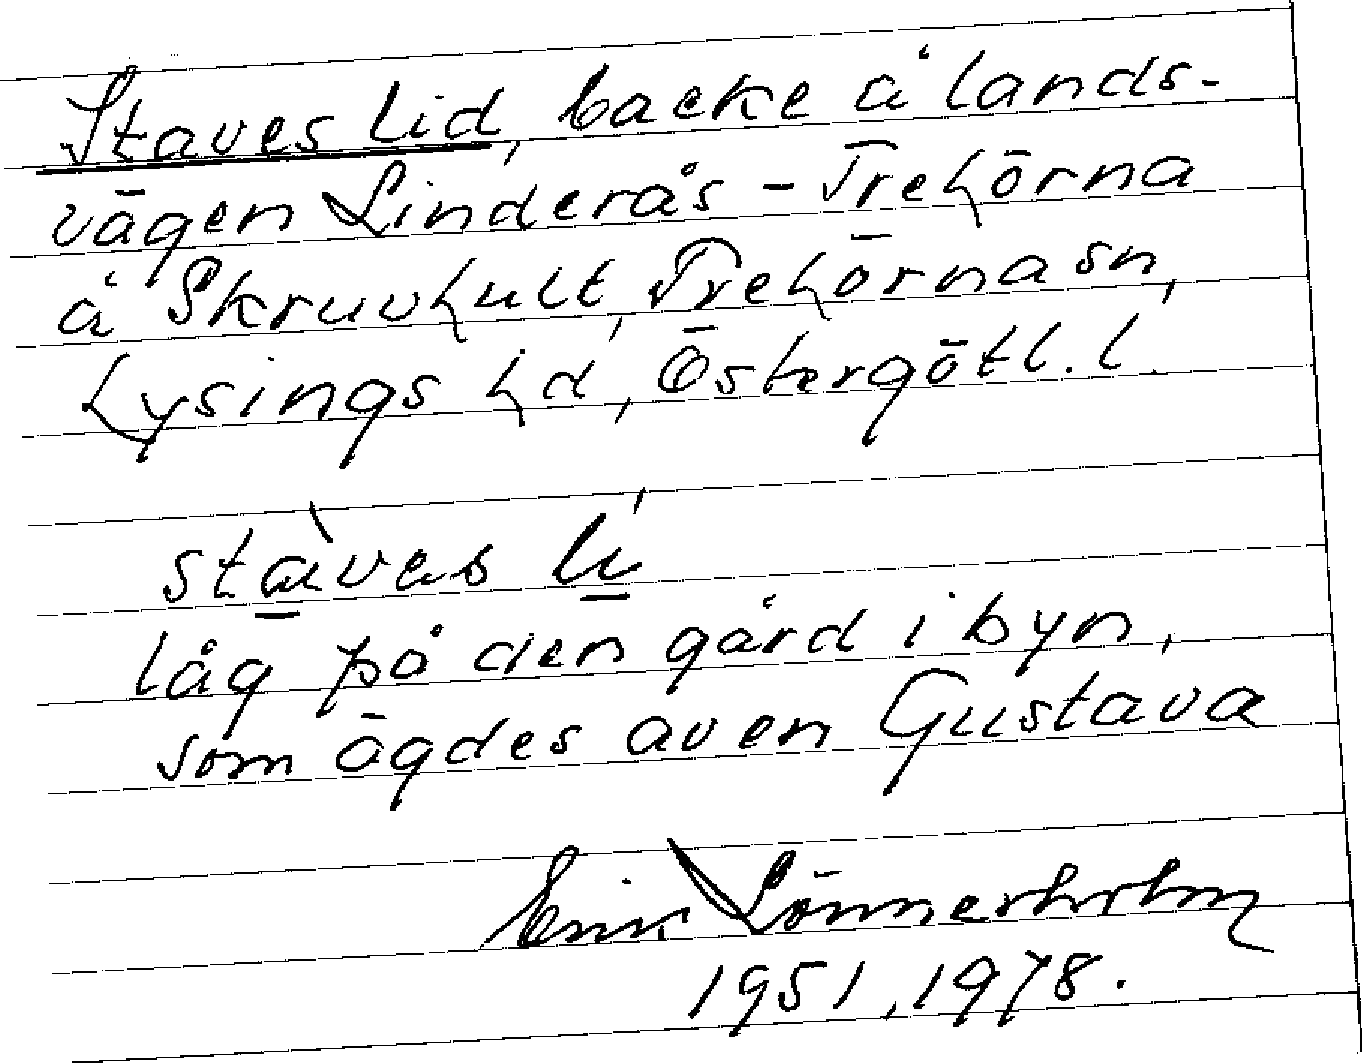 Staves Lid, backe å lands-
vägen Linderås - Trehörna
å Skruvhult, Trehörna sn,
Lysings hd, Östergötl. l.
stàves lí
låg på den gård i byn,
som ägdes av en Gustava
Erik Lönnerholm
1951, 1978.